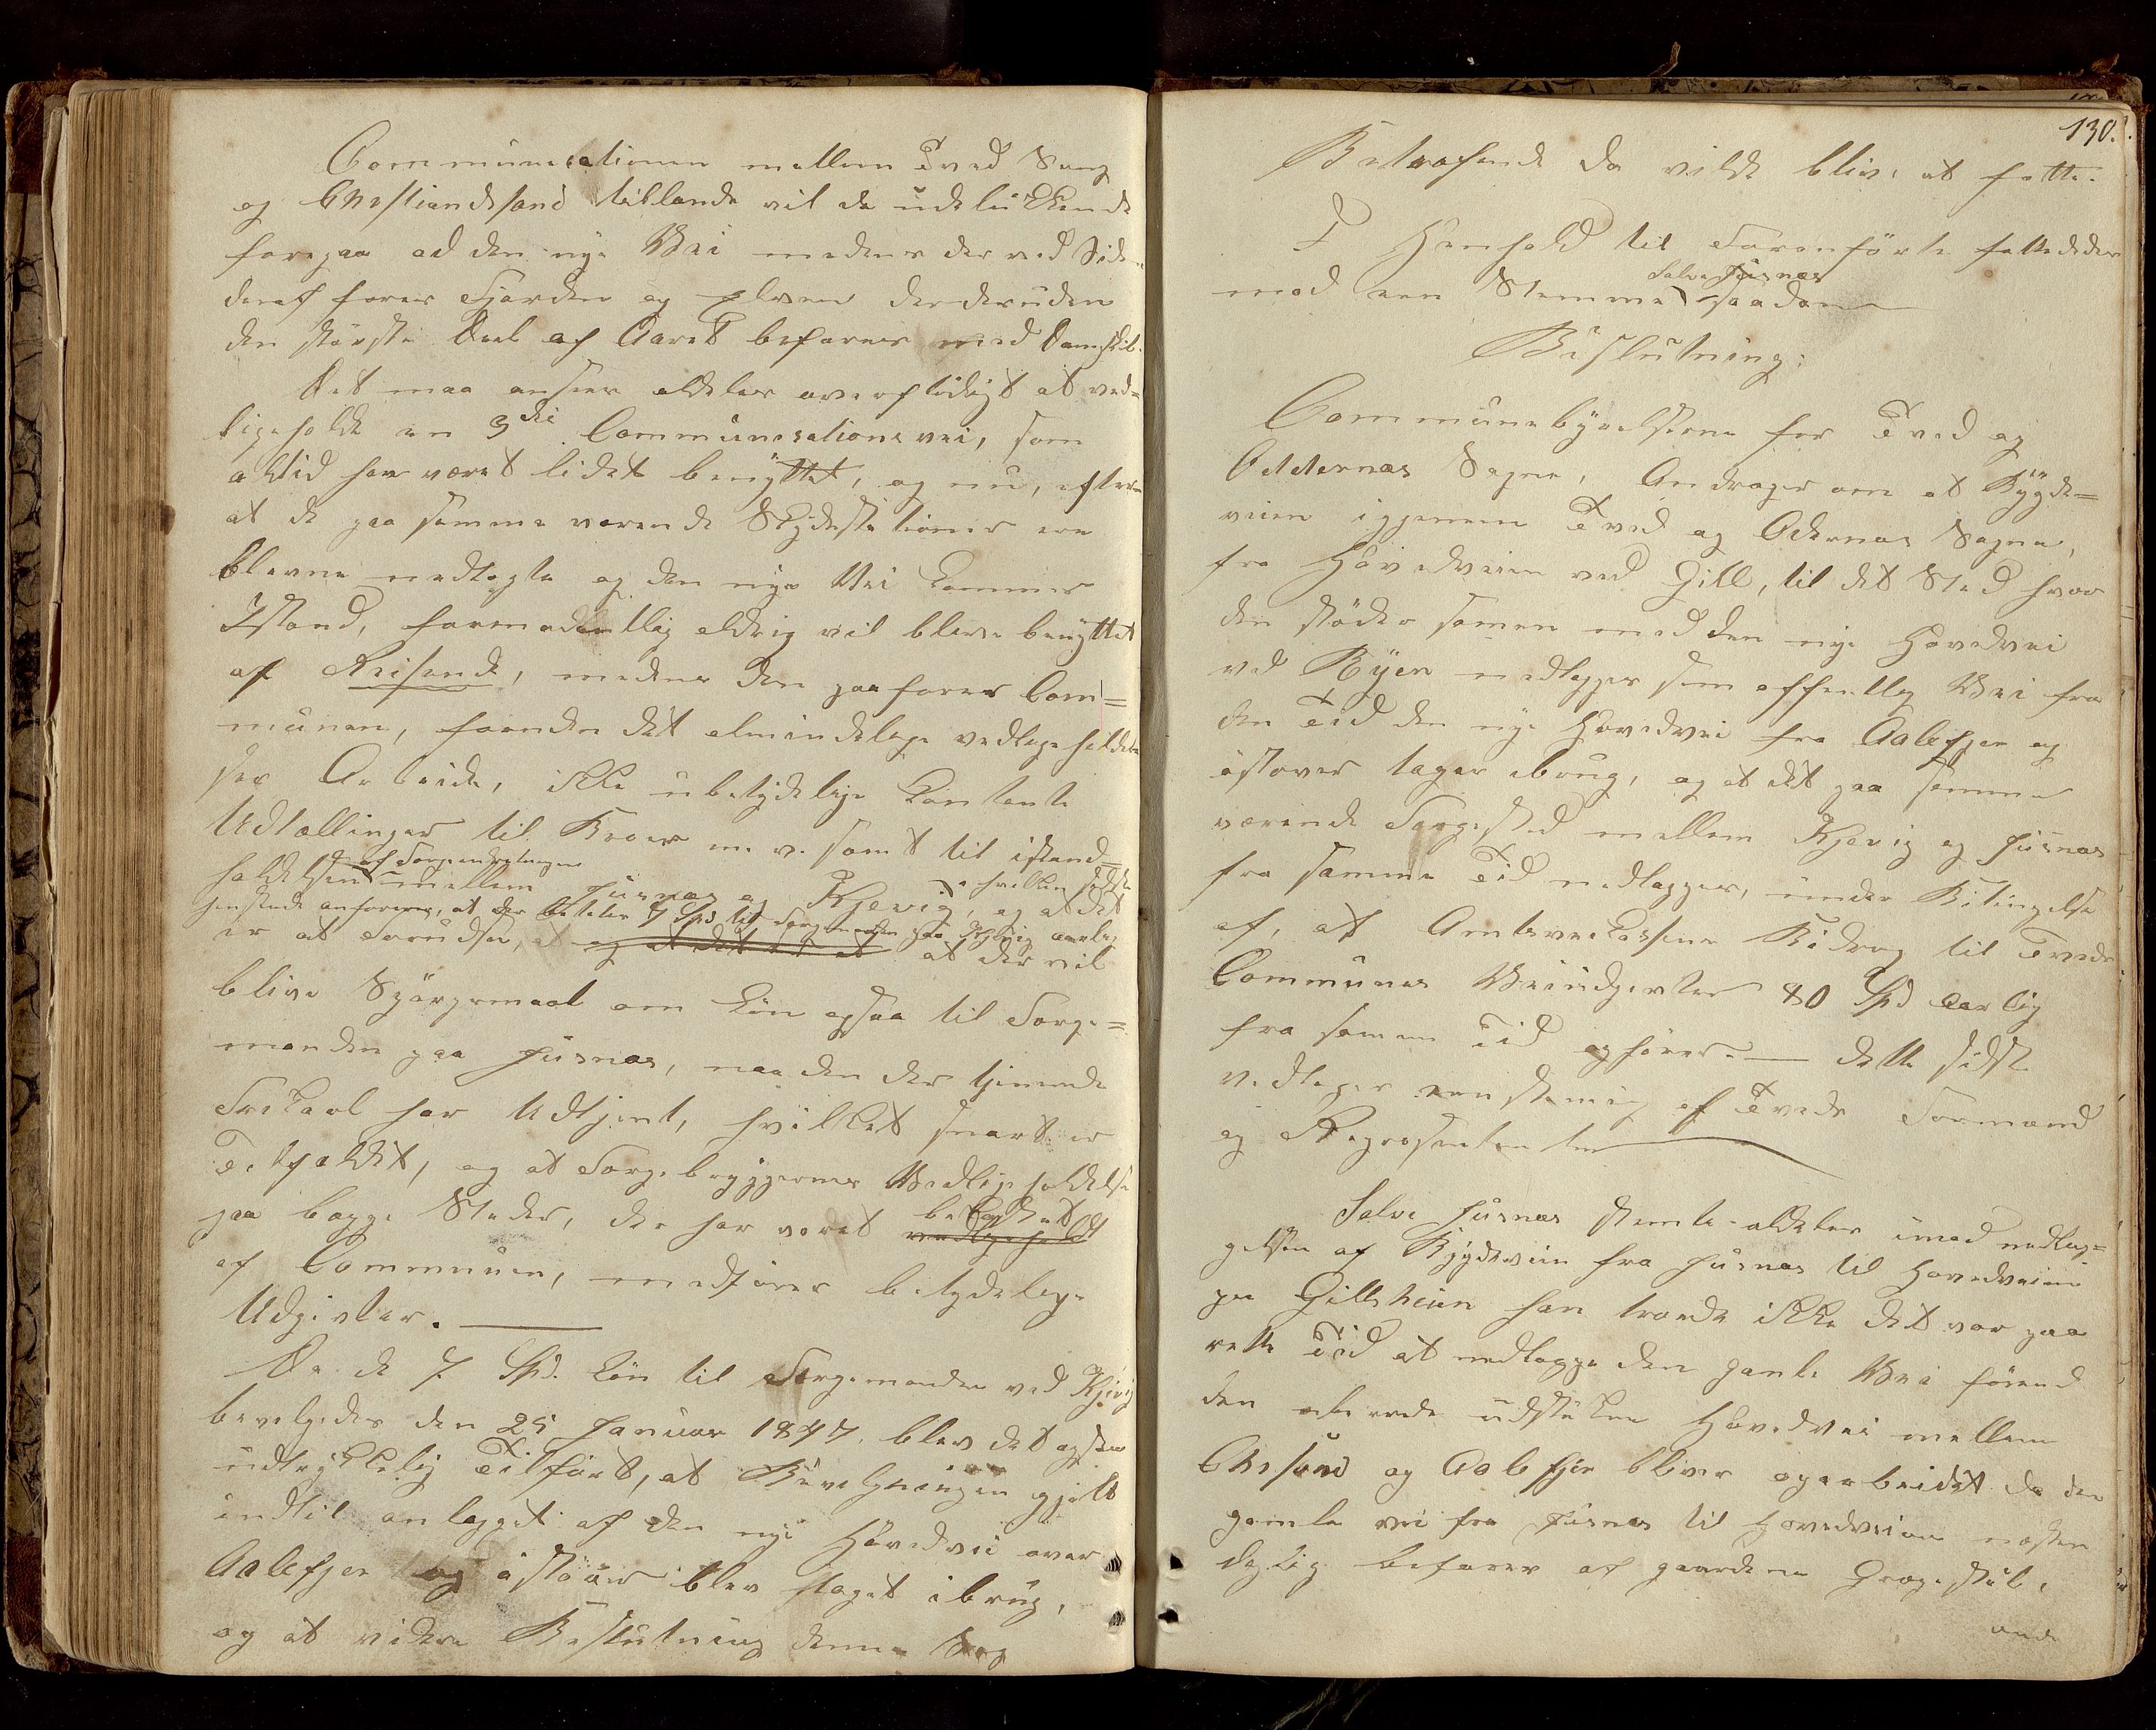 Communicationen mellem Tved Sogn
og Christiandsand tillands vil da udelukkende
foregaa ad den nye Vei medens der ved Siden
deraf fører Fjorden og Elven der desuden
den störste Deel af Aaret befares med Dampskib.
Det maa ansees aldeles overflödigt at ved=
ligeholde en 3die Communicationsvei, som
altid har været lidet benyttet, og nu, efter
at de paa samme værende Skydsstationer ere
blevne nedlagte og den nye Vei kommer
Istand, formodentlig aldrig vil blive benyttet
af Reisende, medens den paaförer Com=
munen, foruden det almindelige vedligeholdel=
ses Arbeide, ikke ubetydelige Contante
Udtællinger til Broer m. v. samt til istand=
holdelsen af Færgeindretningen mellem Justnæs og Kjevig, i hvilken sidste
henseende anföres, at der betales 7 Spd til Færgemanden paa Kjevig aarlig
, og at det
er at forudsee, at der vil
blive Spörgsmaal om Lön ogsaa til Færge=
manden paa Justnæs, naar den der tjenende
Frikarl har Udtjent, hvilket snart er
Tilfældet, og at Færgebryggernes Vedligeholdelse
paa begge Steder, der har været bekostet
af Communen, medförer betydelige
Udgivter. —
Da de 7 Spd. Lön til Færgemanden ved Kjevig
bevilgedes den 25 Januar 1847, blev det ogsaa
udtrykkelig Tilfört, at Bevilgningen gjelt
indtil anlægget af den nye Hovedvei over
Aalefjer og östover blev taget ibrug,
og at videre Beslutning denne Sag
130.
Betræffende da vilde blive at fatte.
I Henhold til Foranförte fattedes
mod een Stemme Salve Justnæs saadan
Beslutning:
Communebestyrelserne for Tved og
Oddernæs Sogne, Andrager om at Bygde=
veien igjennem Tved og Odernæs Sogne,
fra Hovedveien ved Gill, til det Sted hvor
den stöder samen med den nye Hovedvei
ved Ryen nedlægges som offentlig Vei fra
den Tid den nye Hovedvei fra Aalefjer og
östover tages ibrug, og at det paa samme
værende Færgested mellem Kjevig og Justnæs
fra samme Tid nedlægges, under Betingelse
af, at Amtsveicassens Bidrag til Tveds
Communes Veiudgivter 80 Spd aarlig
fra samme Tid ophörer. — dette sidste
vedtages eenstemig af Tveds Formænd
og Repræsentanter
Salve Justnæs stemte aldeles imod nedlæg=
gelsen af Bygdeveien fra Justnæs til Hovedveien
paa Gillsheien han troede ikke det var paa
rette Tid at nedlægge den gamle Vei förend
den allerede udstukne Hovedvei mellem
Chrsand og Aalefjer bliver oparbeidet da den
gamle vei fra Justnæs til Hovedveien næsten
daglig befares af gaardene Grogestul,